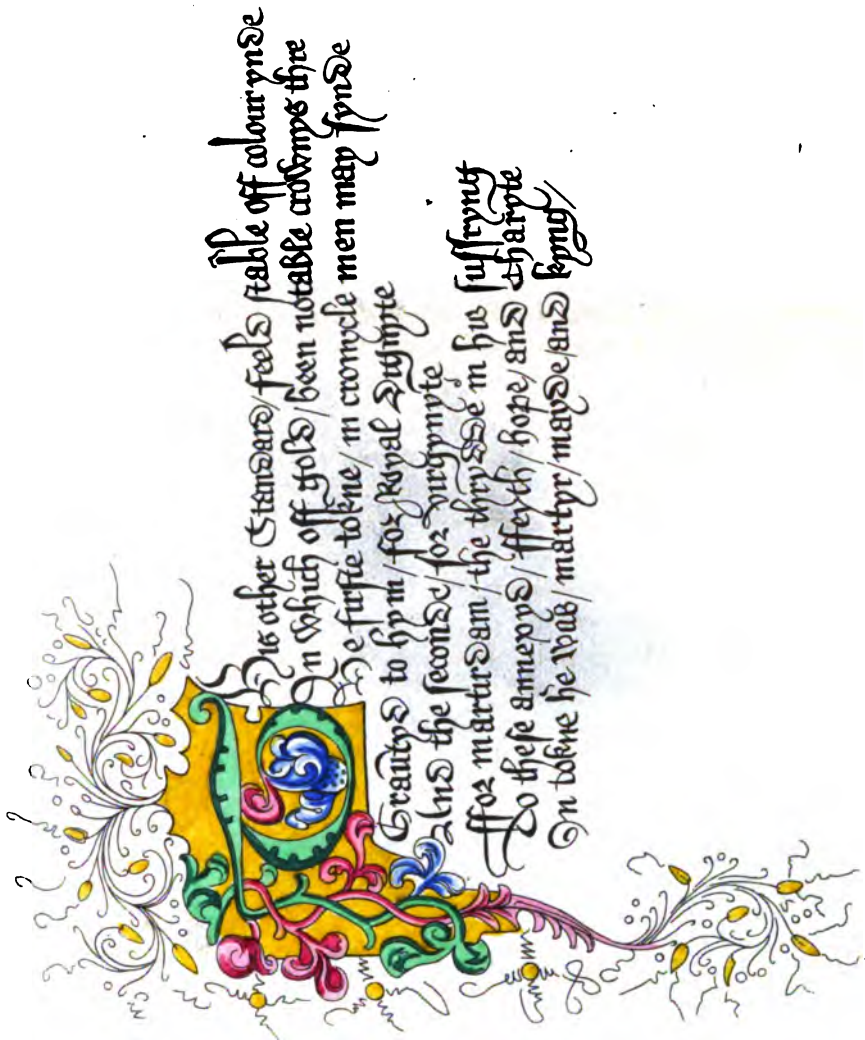 This other Standard / feeld stable off colour ynde
In which off gold / been notable crownys thre
The firste tokne / in cronycle men may fynde
Grauntyd to hym / for Royal dignyte
And the second / for virgynyte
ffor martirdam / the thrydde in his suffryng
To these annexyd / ffeyth / hope / and charyte
In tokne he was / martyr / mayde / and kyng /